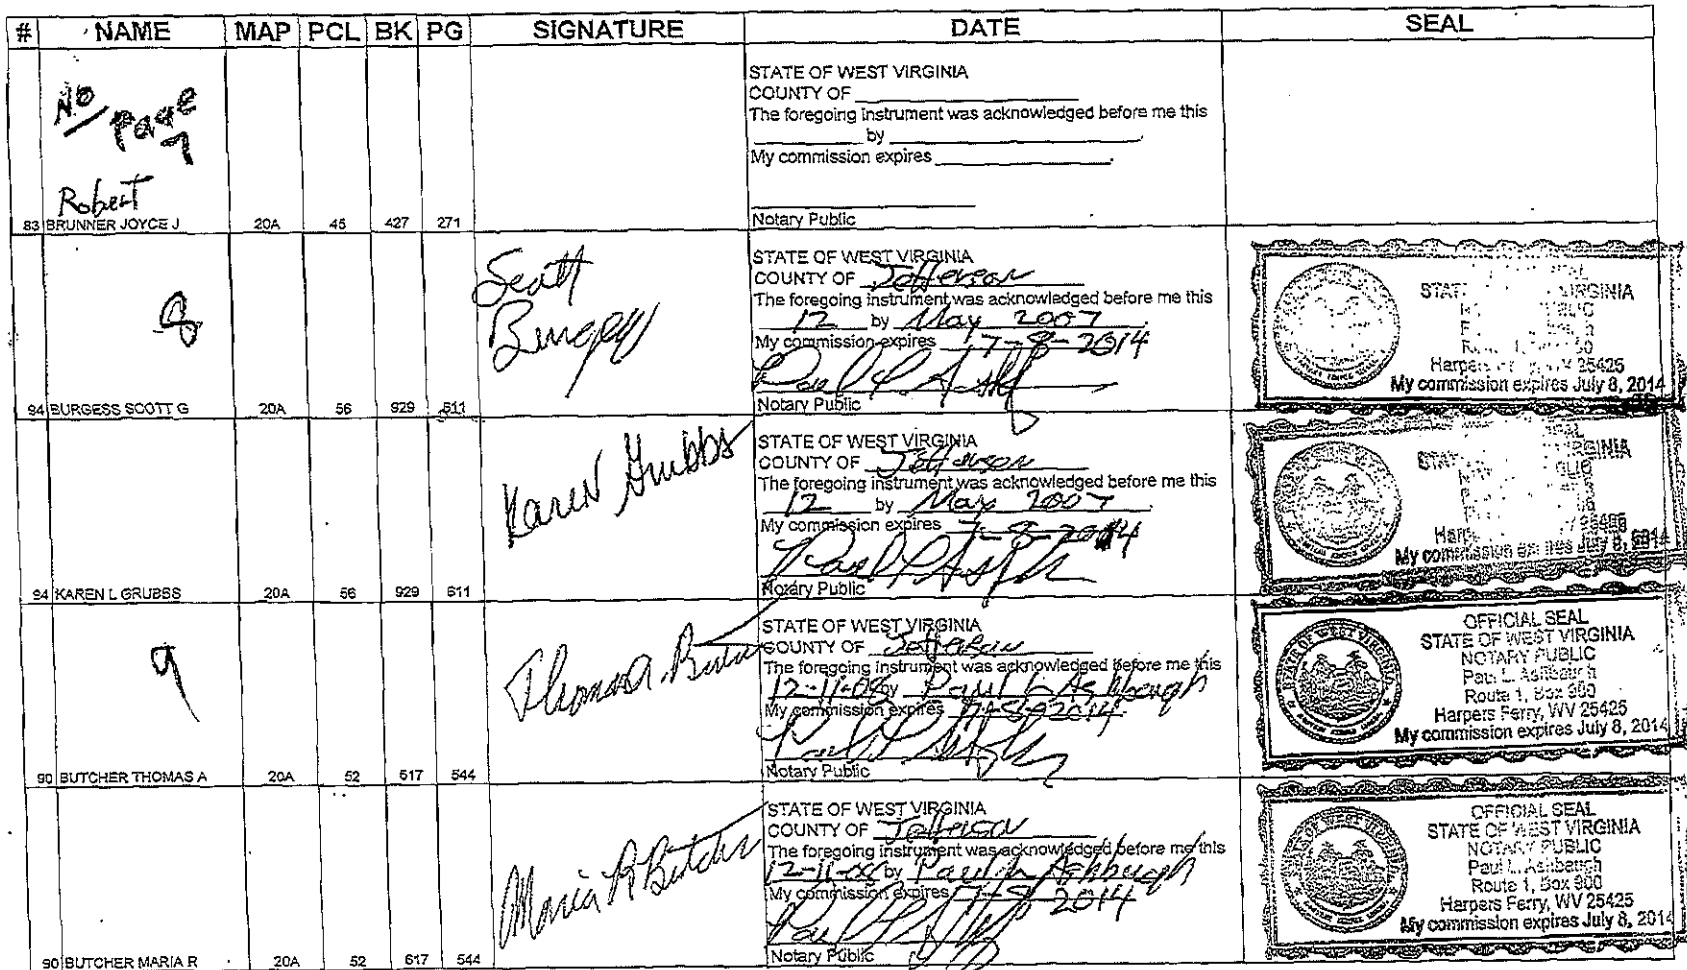 # NAME MAP PCL BK PG SIGNATURE DATE SEAL
No Page 7
Robert
83 BRUNNER JOYCE J 20A 45 427 271
STATE OF WEST VIRGINIA
COUNTY OF
The foregoing instrument was acknowledged before me this
by
My commission expires
Notary Public
8
94 BURGESS SCOTT G 20A 56 929 611
Scott
Burgess
STATE OF WEST VIRGINIA
COUNTY OF Jefferson
The foregoing instrument was acknowledged before me this
12 by May 2007
My commission expires 7-8-2014
Notary Public
VIRGINIA
Harpers 25425
My commission expires July 8, 2014
94 KAREN L GRUBBS 20A 56 929 611
Karen Grubbs
STATE OF WEST VIRGINIA
COUNTY OF Jefferson
The foregoing instrument was acknowledged before me this
12 by May 2007
My commission expires 7-8-2014
Notary Public
My commission expires July 8,
9
90 BUTCHER THOMAS A 20A 52 617 544
Thomas A. Butcher
STATE OF WEST VIRGINIA
COUNTY OF Jefferson
The foregoing instrument was acknowledged before me this
12-11-08 by Paul L Ashbaugh
My commission expires 7-8-2014
Notary Public
OFFICIAL SEAL
STATE OF WEST VIRGINIA
NOTARY PUBLIC
Paul L. Ashbaugh
Route 1, Box 900
Harpers Ferry, WV 25425
My commission expires July 8, 2014
90 BUTCHER MARIA R 20A 52 617 544
Maria R Butcher
STATE OF WEST VIRGINIA
COUNTY OF Jefferson
The foregoing instrument was acknowledged before me this
12-11-08 by Paul L Ashbaugh
My commission expires 7-8 2014
Notary Public
OFFICIAL SEAL
STATE OF WEST VIRGINIA
NOTARY PUBLIC
Paul L. Ashbaugh
Route 1, Box 900
Harpers Ferry, WV 25425
My commission expires July 8, 2014